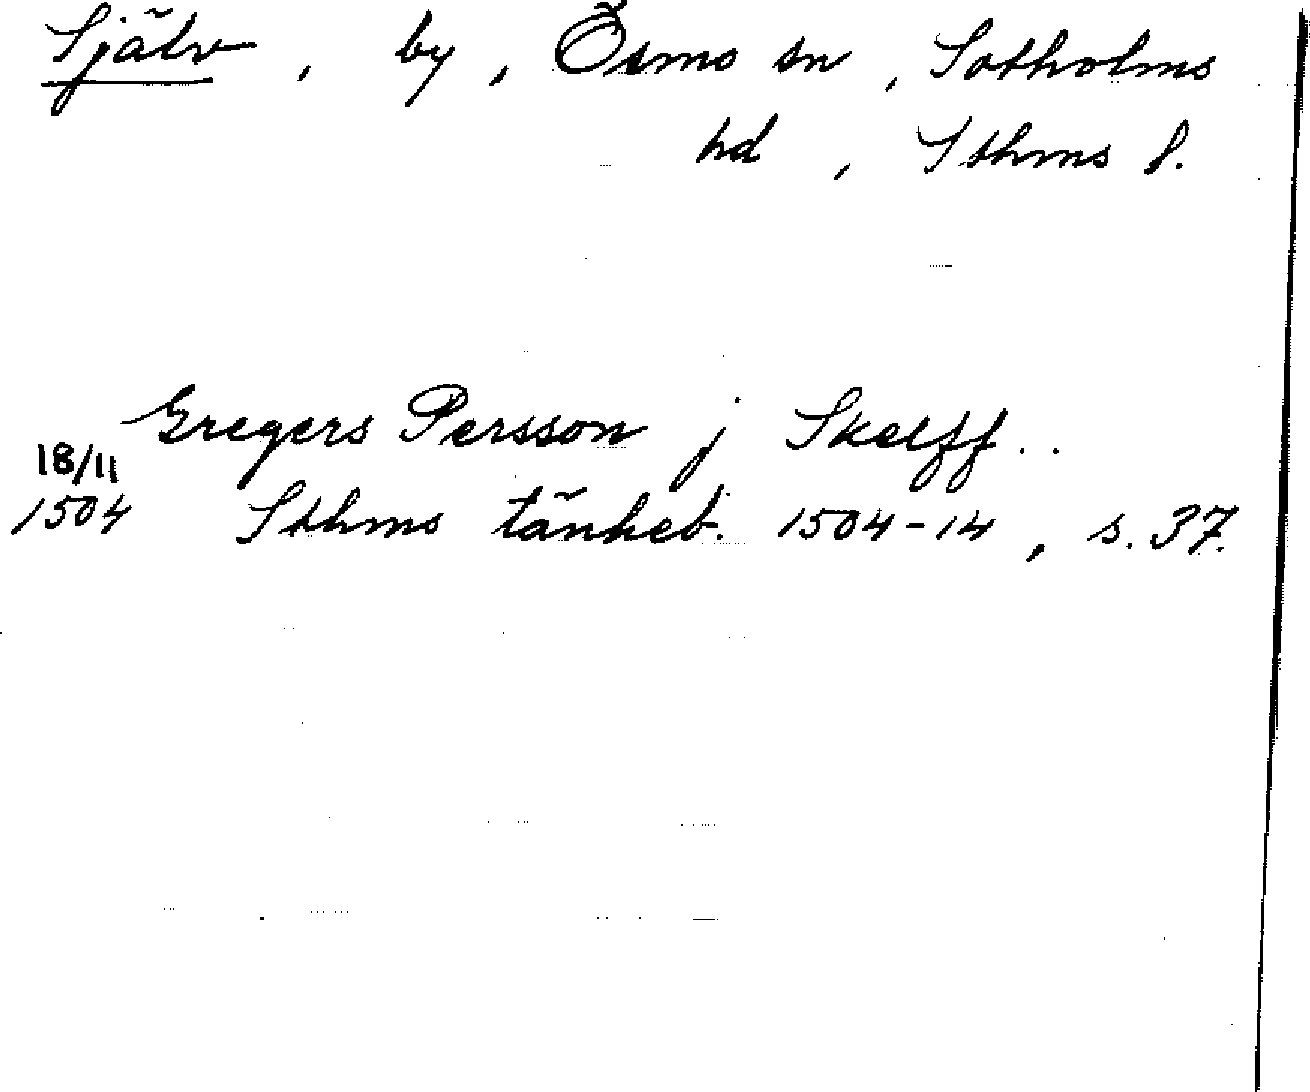 Själv, by, Ösmo sn, Sotholms
hd, Sthms l.
Gregers Persson j Skelff..
18/11
1504 Sthms tänkeb. 1504-14, s. 37.